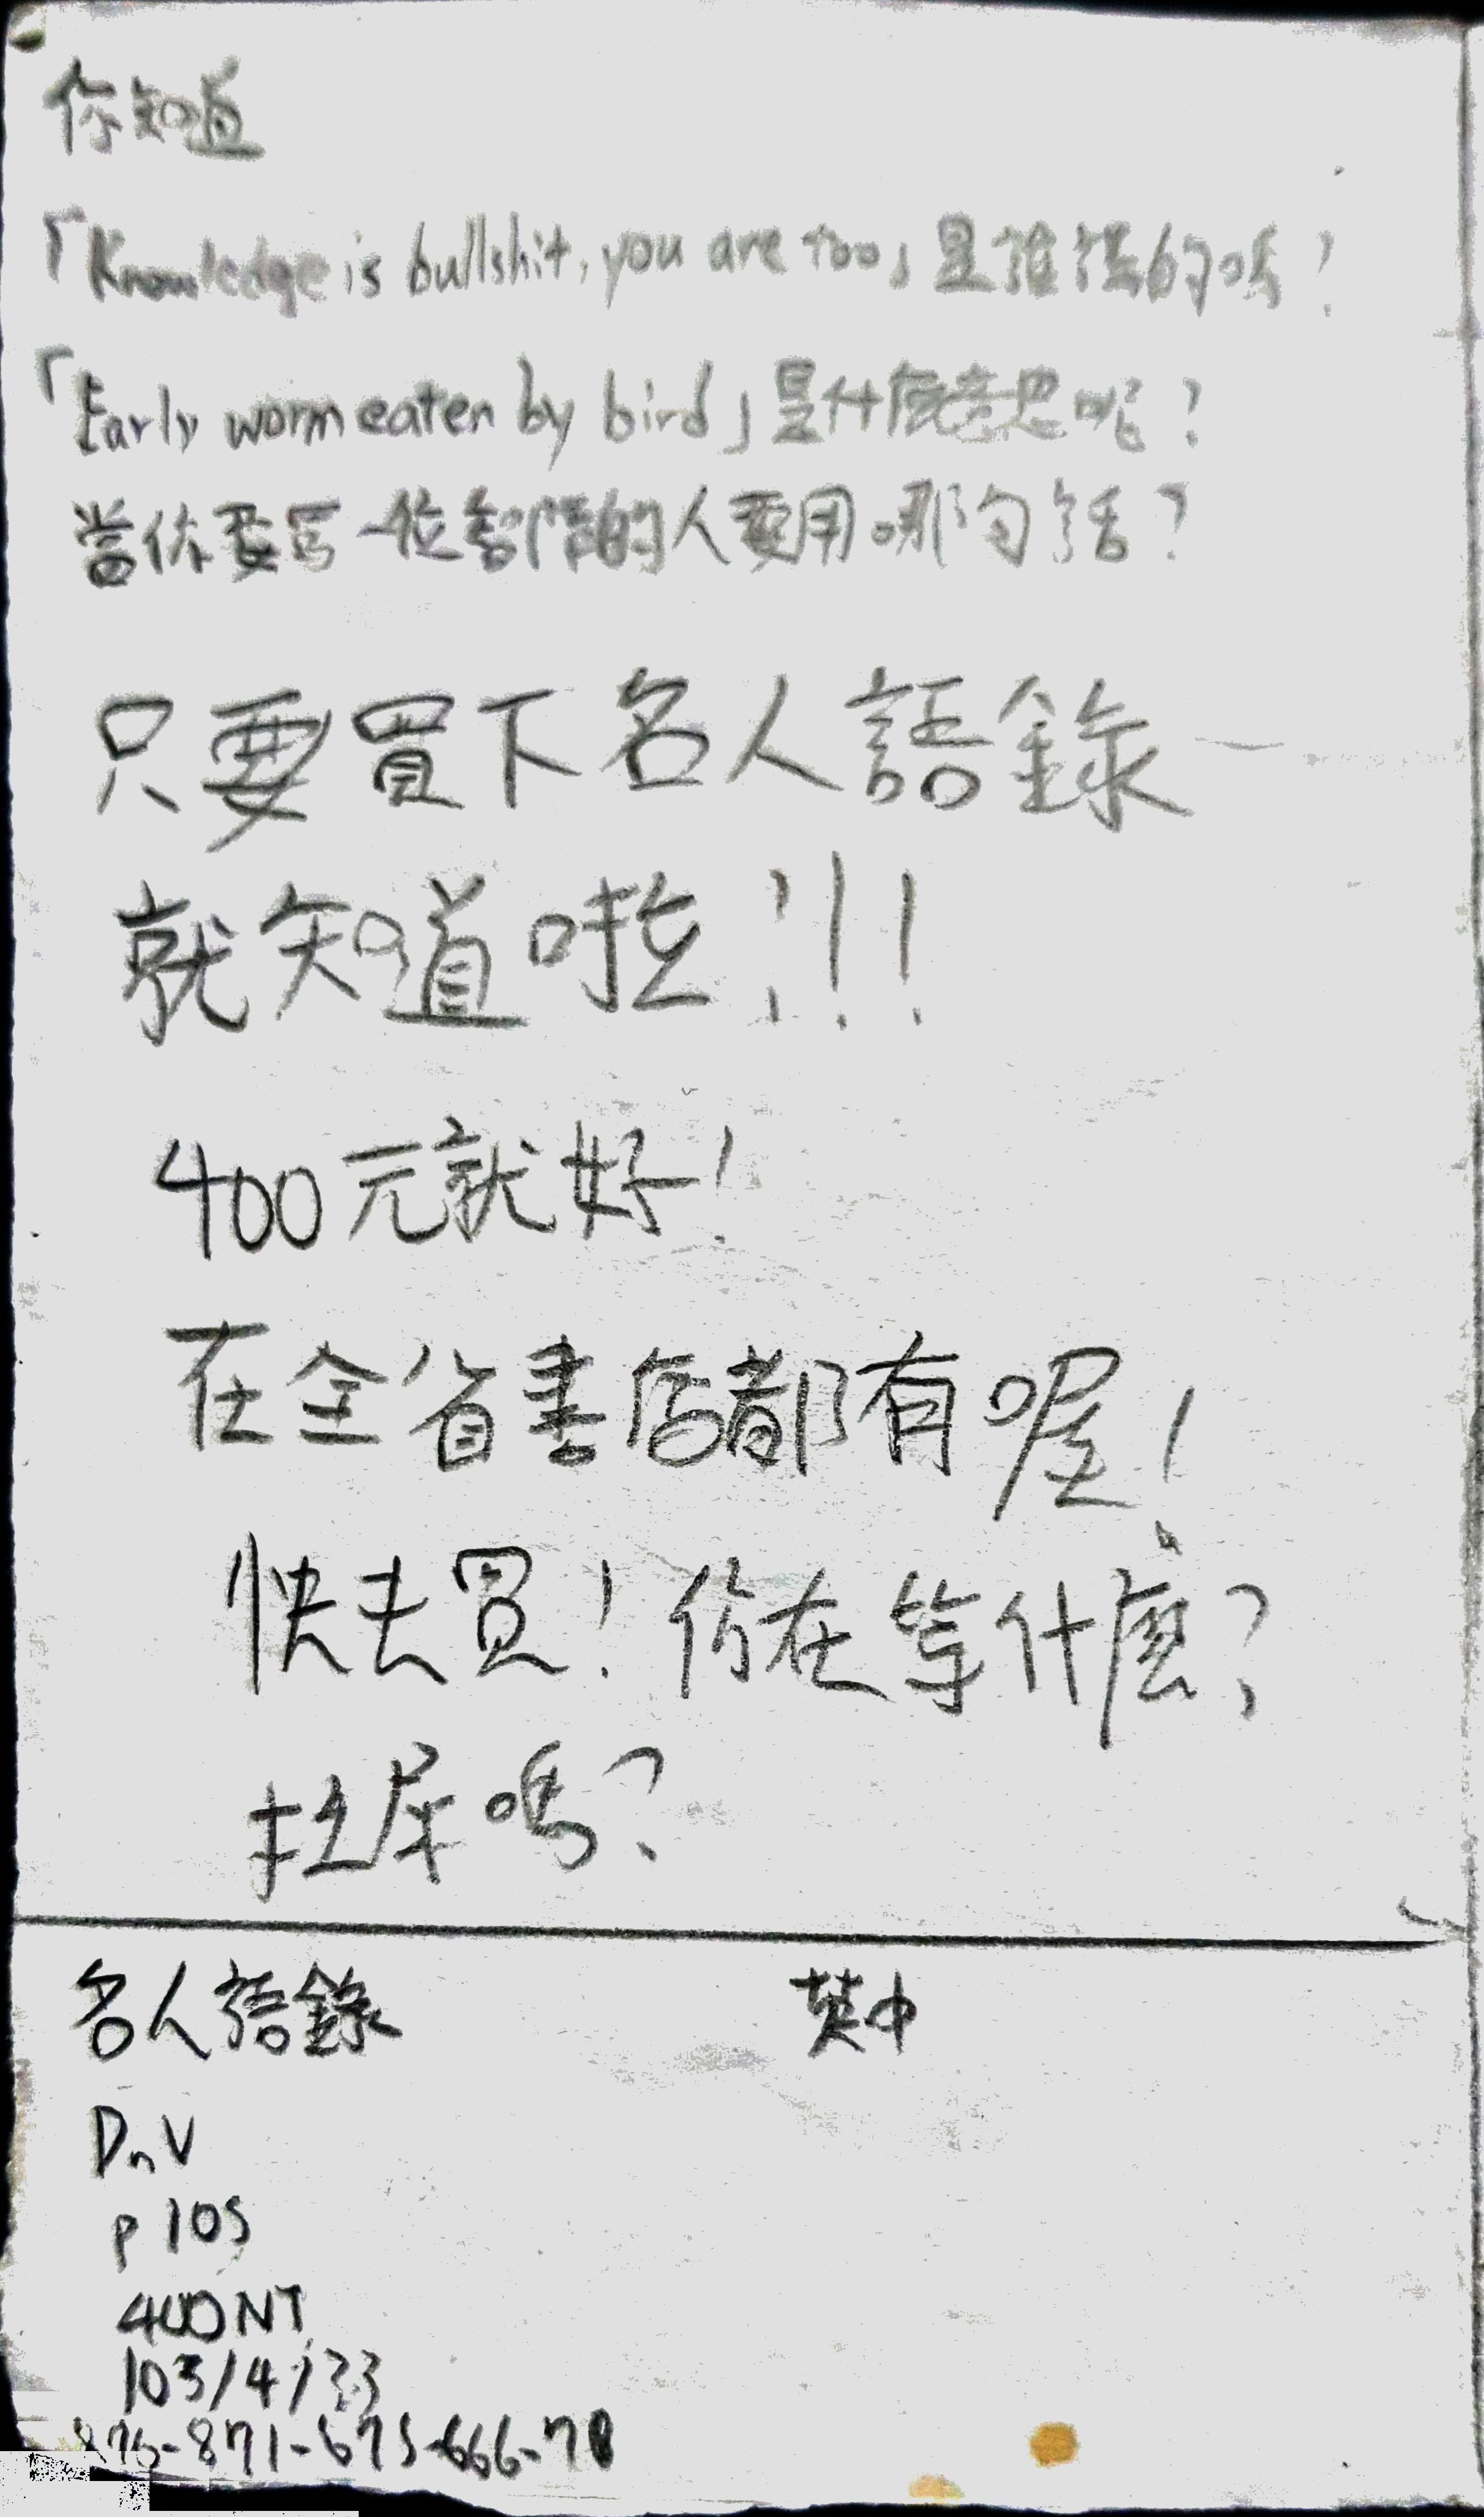 你知道
「Knowledge is bullshit, you are too」是誰講的嗎？
「Early worm eaten by bird」是什麼意思呢？
當你要罵一位智障的人要用哪句話？
只要買下名人語錄
就知道啦！！！
400元就好！
在全省書店都有喔！
快去買！你在等什麼？
拉屎嗎？
名人語錄 英中
DnV
P 105
400NT
103/4/23
876-871-675-666-78